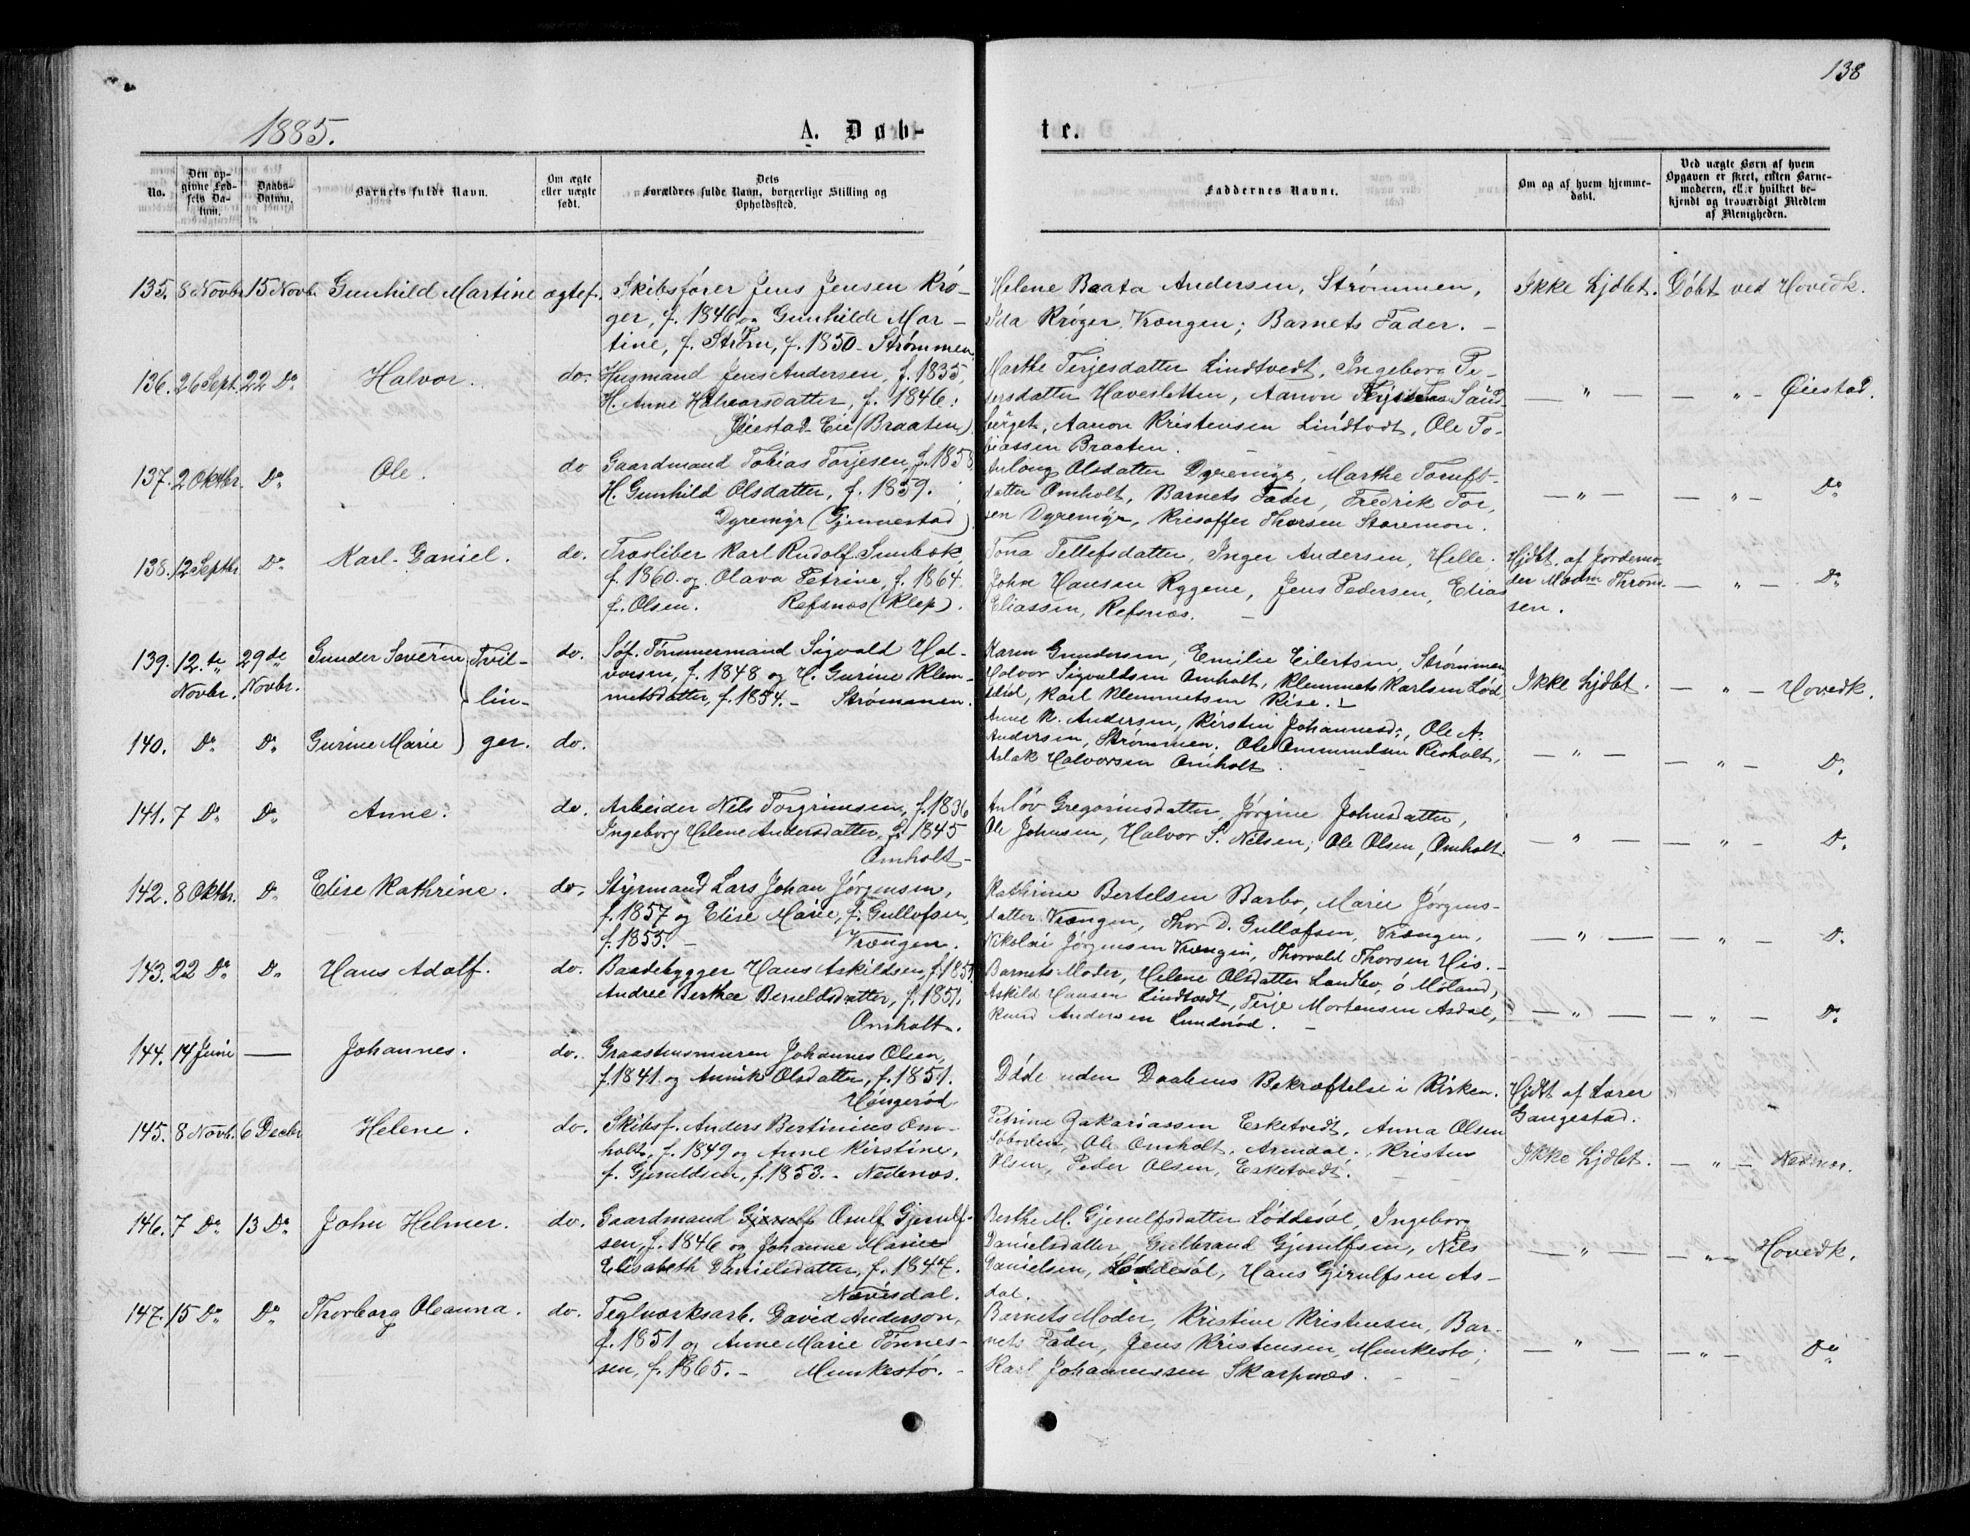 138
1885.
A. Døb-
te.
No.
Den op-
givne Fød-
sels Da-
tum.
Daabs-
Datum.
Barnets fulde Navn.
Om ægte
eller uægte
født.
Dets
Forældres fulde Navn, borgerlige Stilling og
Opholdssted.
Faddernes Navne.
Om og af hvem hjemme-
døbt.
Ved uægte Børn af hvem
Opgaven er skeet, enten Barne-
moderen, eller hvilket be-
kjendt og troværdigt Medlem
af Menigheden.
135. 8 Novbr. 15 Novb. Gunhild Martine ægtef. Skibsfører Jens Jensen Krø-
ger, f. 1846 og Gunhilde Mar-
tine, f. Strøm, f. 1850 - Strømmen
Helene Baata Andersen, Strømmen,
Ida Krøger, Vrængen; Barnets Fader. -
Ikke hjdbt. Døbt ved Hovedk.
136. 26 Sept. 22 Do Halvor. do. Husmand Jens Andersen, f. 1835,
H. Anne Halvorsdatter, f. 1846:
Øiestad Eie (Braaten).
Marthe Terjesdatter Lindtvedt, Ingeborg Pe-
dersdatter Havesletten, Aanon Sand-
berget, Aanon Kristensen Lindtvedt, Ole To-
biassen Braaten.
— " — — " - Øiestad.
137. 2 Oktbr. Do Ole. do Gaardmand Tobias Torjesen, f. 1858
H. Gunhild Olsdatter, f. 1859.
Dyremyr (Gjennestad)
Anlaug Olsdatter Dyremyr, Marthe
datter Omholt, Barnets Fader, Fredrik Tor,
sen Dyremyr, Thorsen Staremon.
— " — — " — Do
138. 12 Septbr. Do Karl Daniel. do. Træsliber Karl Rudolf
f. 1860 og Olava Petrine, f. 1864.
f. Olsen. Refsnæs (Klep).
Tona Tellefsdatter, Inger Andersen, Helle.
John Hansen Rygene, Jens Pedersen, Elias
Eliassen, Refsnæs. -
Hjdbt. af Jordemo-
der Madm Throm-
sen.
— " — Do
139. 12.te Novbr. 29de Novbr. Gunder Severin Tvil-
lin-
do. Søf. Tømmermand Sigvald Hal-
vorsen, f. 1848 og H. Gurine Klem-
metsdatter, f. 1854. - Strømmen.
Karen Gundersen, Emilie Eilertsen, Strømmen
Halvor Sigvaldsen Omholt, Klemmet Karlsen Lød-
desøl, Karl Klemmetsen Rise.
Ikke hjdbt. — " — Hovedk.
140. Do Do Gurine Marie ger. do.
Anne K. Andersen, Kirstin Johannesd:, Ole A.
Andersen, Strømmen. Ole Ommundsen Risholt,
Aslak Halvorsen Omholt.
— " — — " — Do
141. 7 Do Do Anne. do. Arbeider Nils Torgrimsen, f. 1836
Ingeborg Helene Andersdatter, f. 1845
Omholt -
Anlöv Gregoriusdatter, Jørgine Johnsdatter,
Ole Johnsen, Halvor S. Nilsen, Ole Olsen, Omholt.
— " — — " — Do
142. 8 Oktbr. Do Elise Kathrine. do. Styrmand Lars Johan Jørgensen,
f. 1857 og Elise Marie, f. Gullofsen,
f. 1855. - Vrængen.
Kathrine Bertelsen Barbo, Marie Jørgens-
datter Vrængen, Thor D. Gullofsen, Vrængen,
Nikolai Jørgensen Vrængen, Thorvald Thorsen His. -
— " — — " — Do
143. 22 Do Do Hans Adolf. do. Baadebygger Hans Askildsen, f. 1851.
Andrea Berthea Beruldsdatter, f. 1851.
Omholt.
Barnets Moder, Helene Olsdatter Landbø, ö Moland,
Askild Hansen Lindtvedt, Terje Mortensen Asdal,
Knud Andersen Lunderød. -
— " — — " — Do
144. 14 Juni — Johannes. do. Graastensmurer Johannes Olsen,
f. 1841 og Annik Olsdatter, f. 1851.
Haugerød
Døde uden Daabens Bekræftelse i Kirken.
Hjdt af Lærer
Gangestad.
145. 8 Novb. 6 Decbr Helene. do. Skibsf. Anders Bertinius Om-
holt, f. 1849 og Anne Kirstine,
f. Gjeruldsen, f. 1853. - Nedenæs.
Petrine Zakariassen Esketvedt, Anna Olsen
Ole Omholt, Arendal. Kristen
Olsen, Peder Olsen, Esketvedt.
Ikke hjdbt. — " — Nedenæs.
146. 7 Do 13 Do John Helmer. do. Gaardmand Gjerulf Osulf Gjerulf-
sen, f. 1846 og Johanne Marie
Elisabeth Danielsdatter, f. 1847.
Nævisdal.
Berthe M. Gjerulfsdatter Løddesøl, Ingeborg
Danielsdatter Gulbrand Gjerulfsen, Nils
Danielsen, Løddesøl, Hans Gjerulfsen As-
dal.
— " — — " — Hovedk.
147. 15 Do Do Thorborg Oleanna. do. Teglværksarb. David Anderson,
f. 1851 og Anne Marie Tønnes-
sen, f. 1865. - Munkestø. -
Barnets Moder, Kristine Kristensen, Bar-
nets Fader, Jens Kristensen, Munkestø;
Karl Johannessen Skarpnæs. -
— " — — " — Do